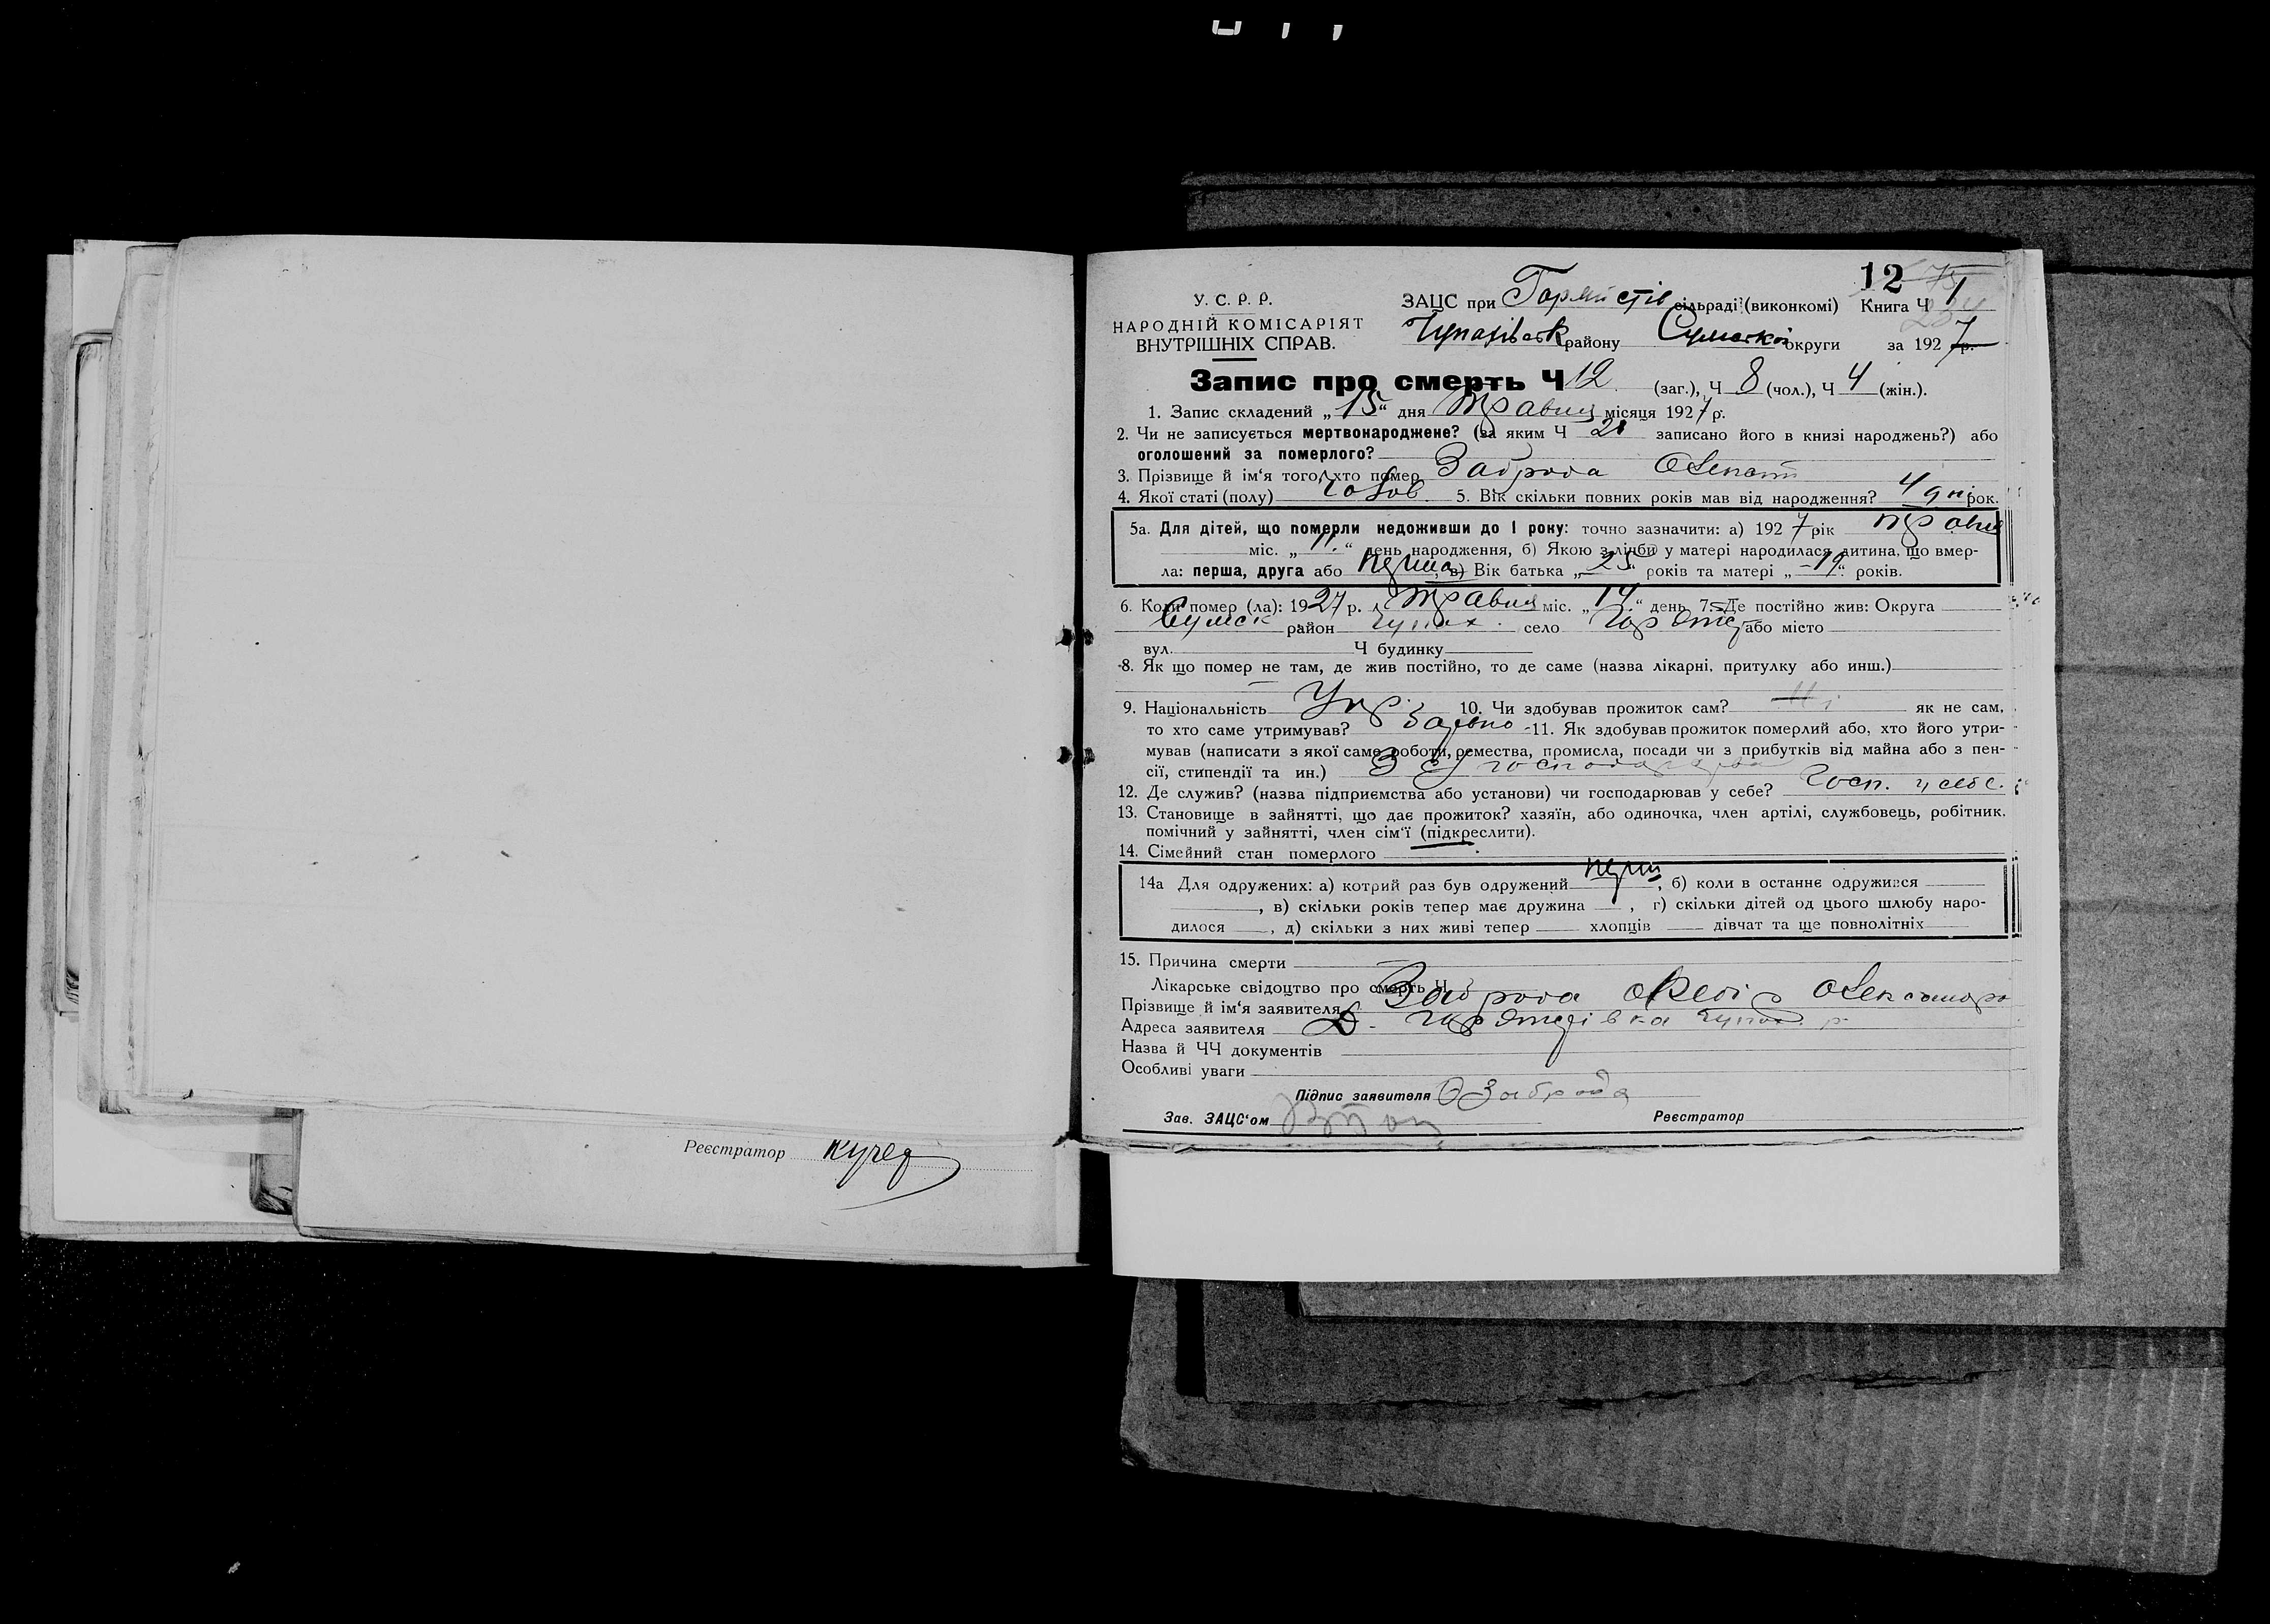 12
У. С. Р. Р.
НАРОДНІЙ КОМІСАРІЯТ
ВНУТРІШНІХ СПРАВ.
ЗАЦС при сільраді (виконкомі) Книга Ч 1
району Сумської округи за 1927 р.
Запис про смерть Ч 12 (заг.), Ч 8 (чол.), Ч 4 (жін.).
1. Запис складений „15“ дня Травня місяця 1927 р.
2. Чи не записується мертвонароджене? (за яким Ч записано його в книзі народжень?) або
оголошений за померлого?
3. Прізвище й ім'я того, хто помер Заброда
4. Якої статі (полу) чолов. 5. Вік скільки повних років мав від народження? 4 дні рок.
5а. Для дітей, що померли недоживши до 1 року: точно зазначити: а) 1927 рік травня
міс. „11“ день народження, б) Якою з лічби у матері народилася дитина, що вмер-
ла: перша, друга або перша, в) Вік батька „25“ років та матері „19“ років.
6. Коли помер (ла): 1927 р. Травня міс. „14“ день 7. Де постійно жив: Округа
Сумск район Чупах. село або місто
вул. Ч будинку
8. Як що помер не там, де жив постійно, то де саме (назва лікарні, притулку або инш.)
9. Національність Укр. 10. Чи здобував прожиток сам? Ні як не сам,
то хто саме утримував? 11. Як здобував прожиток померлий або, хто його утри-
мував (написати з якої саме роботи, ремества, промисла, посади чи з прибутків від майна або з пен-
сії, стипендії та ин.) З с/господарства
12. Де служив? (назва підприємства або установи) чи господарював у себе? Госп. у себе.
13. Становище в зайнятті, що дає прожиток? хазяїн, або одиночка, член артілі, службовець, робітник,
помічний у зайнятті, член сім'ї (підкреслити).
14. Сімейний стан померлого
14а Для одружених: а) котрий раз був одружений перш, б) коли в останнє одружився
, в) скільки років тепер має дружина , г) скільки дітей од цього шлюбу наро-
дилося , д) скільки з них живі тепер хлопців дівчат та ще повнолітніх
15. Причина смерти
Лікарське свідоцтво про смерть Ч
Прізвище й ім'я заявителя Заброда
Адреса заявителя
Назва й ЧЧ документів
Особливі уваги
Підпис заявителя Заброда
Зав. ЗАЦС'ом Реєстратор
Реєстратор Кучер